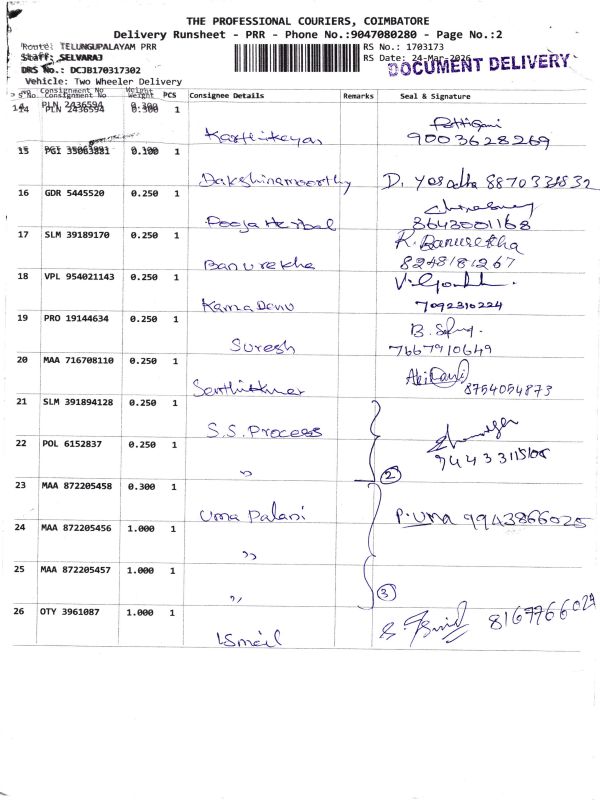 THE PROFESSIONAL COURIERS, COIMBATORE
Delivery Runsheet - PRR - Phone No.:9047080280 - Page No.:2
Route: TELUNGUPALAYAM PRR
RS No.: 1703173
Staff: SELVARAJ
RS Date: 24-Mar-2026
DOCUMENT DELIVERY
DRS No.: DCJB170317302
Vehicle: Two Wheeler Delivery
S No. Consignment No Weight PCS Consignee Details Remarks Seal & Signature
14 PLN 2436594 0.300 1 Karthikeyan 9003628269
15 PGI 35063881 0.100 1 Dakshinamoorthy D. Yasodha 8870331832
16 GDR 5445520 0.250 1 Pooja Herbal 8643001168
17 SLM 39189170 0.250 1 Banurekha R. Banurekha 8248181267
18 VPL 954021143 0.250 1 Kama Denu 7092310224
19 PRO 19144634 0.250 1 Suresh 7667910649
20 MAA 716708110 0.250 1 Senthilkumar 8754054873
21 SLM 391894128 0.250 1 S.S. Process
22 POL 6152837 0.250 1 " 2
23 MAA 872205458 0.300 1 Uma Palani P. UMA 9943866025
24 MAA 872205456 1.000 1 "
25 MAA 872205457 1.000 1 " 3
26 OTY 3961087 1.000 1 Ismail